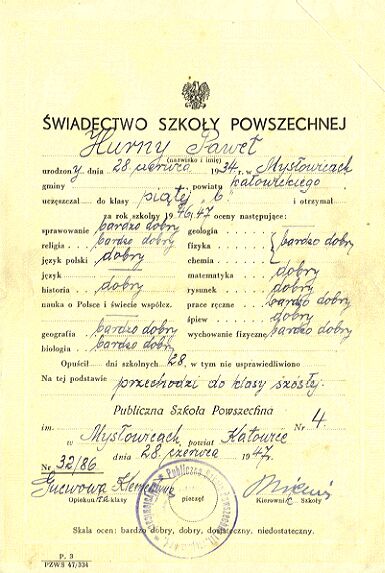 ŚWIADECTWO SZKOŁY POWSZECHNEJ
Hurny Paweł
(nazwisko i imię)
urodzony dnia 28 czerwca 1934 r. w Mysłowicach
gminy powiatu katowickiego
uczęszczał do klasy piątej b i otrzymał
za rok szkolny 1946/47 oceny następujące:
sprawowanie bardzo dobry geologia
religia bardzo dobry fizyka bardzo dobry
język polski dobry chemia
język matematyka dobry
historia dobry rysunek dobry
nauka o Polsce i świecie współcz. prace ręczne bardzo dobry
śpiew dobry
geografia bardzo dobry wychowanie fizyczne bardzo dobry
biologia bardzo dobry
Opuścił dni szkolnych 28, w tym nie usprawiedliwiono
Na tej podstawie przechodzi do klasy szóstej.
Publiczna Szkoła Powszechna
im. Nr 4
w Mysłowicach powiat Katowice
dnia 28 czerwca 1947.
Nr 32/86
Opiekun klasy pieczęć Kierownik Szkoły
Skala ocen: bardzo dobry, dobry, dostateczny, niedostateczny.
P. 3
PZWS 47/334